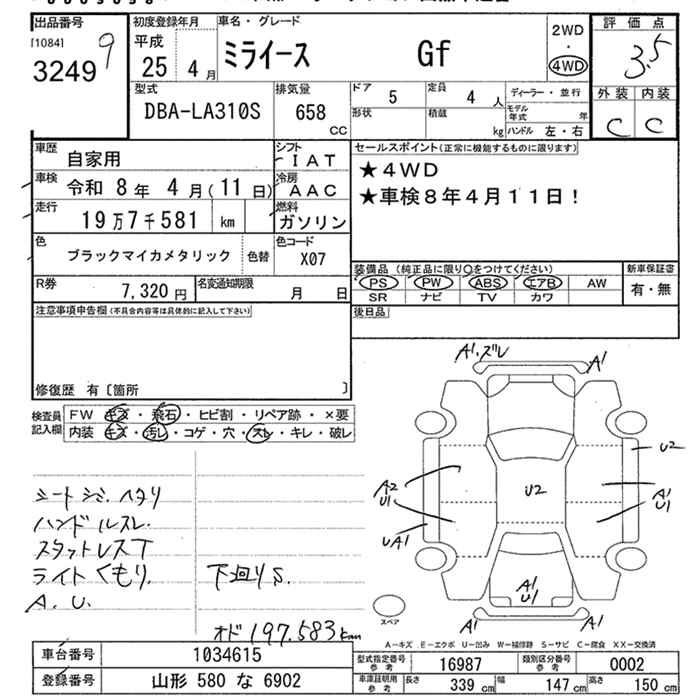 出品番号 初度登録年月 車名・グレード 評価点
[1084] 9 平成 2WD ・ 4WD 3.5
3249 25 4月 ミライース Gf
型式 排気量 ドア 5 定員 4人 ディーラー・並行 外装 内装
DBA-LA310S 658 CC 形状 積載 kg モデル年式 年 ハンドル 左・右 C C
車歴 自家用 シフト IAT セールスポイント(正常に機能するものに限ります)
車検 令和 8年 4月(11日) 冷房 AAC ★4WD
走行 19万7千581 km 燃料 ガソリン ★車検8年4月11日!
色 ブラックマイカメタリック 色替 色コード X07
装備品 (純正品に限り○をつけてください) 新車保証書
PS PW ABS エアB AW 有・無
SR ナビ TV カワ
R券 7,320円 名変通知期限 月 日
注意事項申告欄(不具合内容等は具体的に記入して下さい) 後日品
修復歴 有〔箇所 〕
検査員記入欄 FW キズ・飛石・ヒビ割・リペア跡・×要
内装 キズ・汚レ・コゲ・穴・スレ・キレ・破レ
A1.ズレ A1
U2
A2 U1 U2 A1 U1
UA1
A1 U1
A1 A1
スペア
シートシミ.ヘタリ
ハンドルスレ.
スタットレスT
ライトくもり. 下廻りS.
A.U.
オド197.583km
A-キズ E-エクボ U-凹み W-補修跡 S-サビ C-腐食 XX-交換済
車台番号 1034615 型式指定番号 参考 16987 類別区分番号 参考 0002
登録番号 山形 580 な 6902 車庫証明用 参考 長さ 339cm 幅 147cm 高さ 150cm